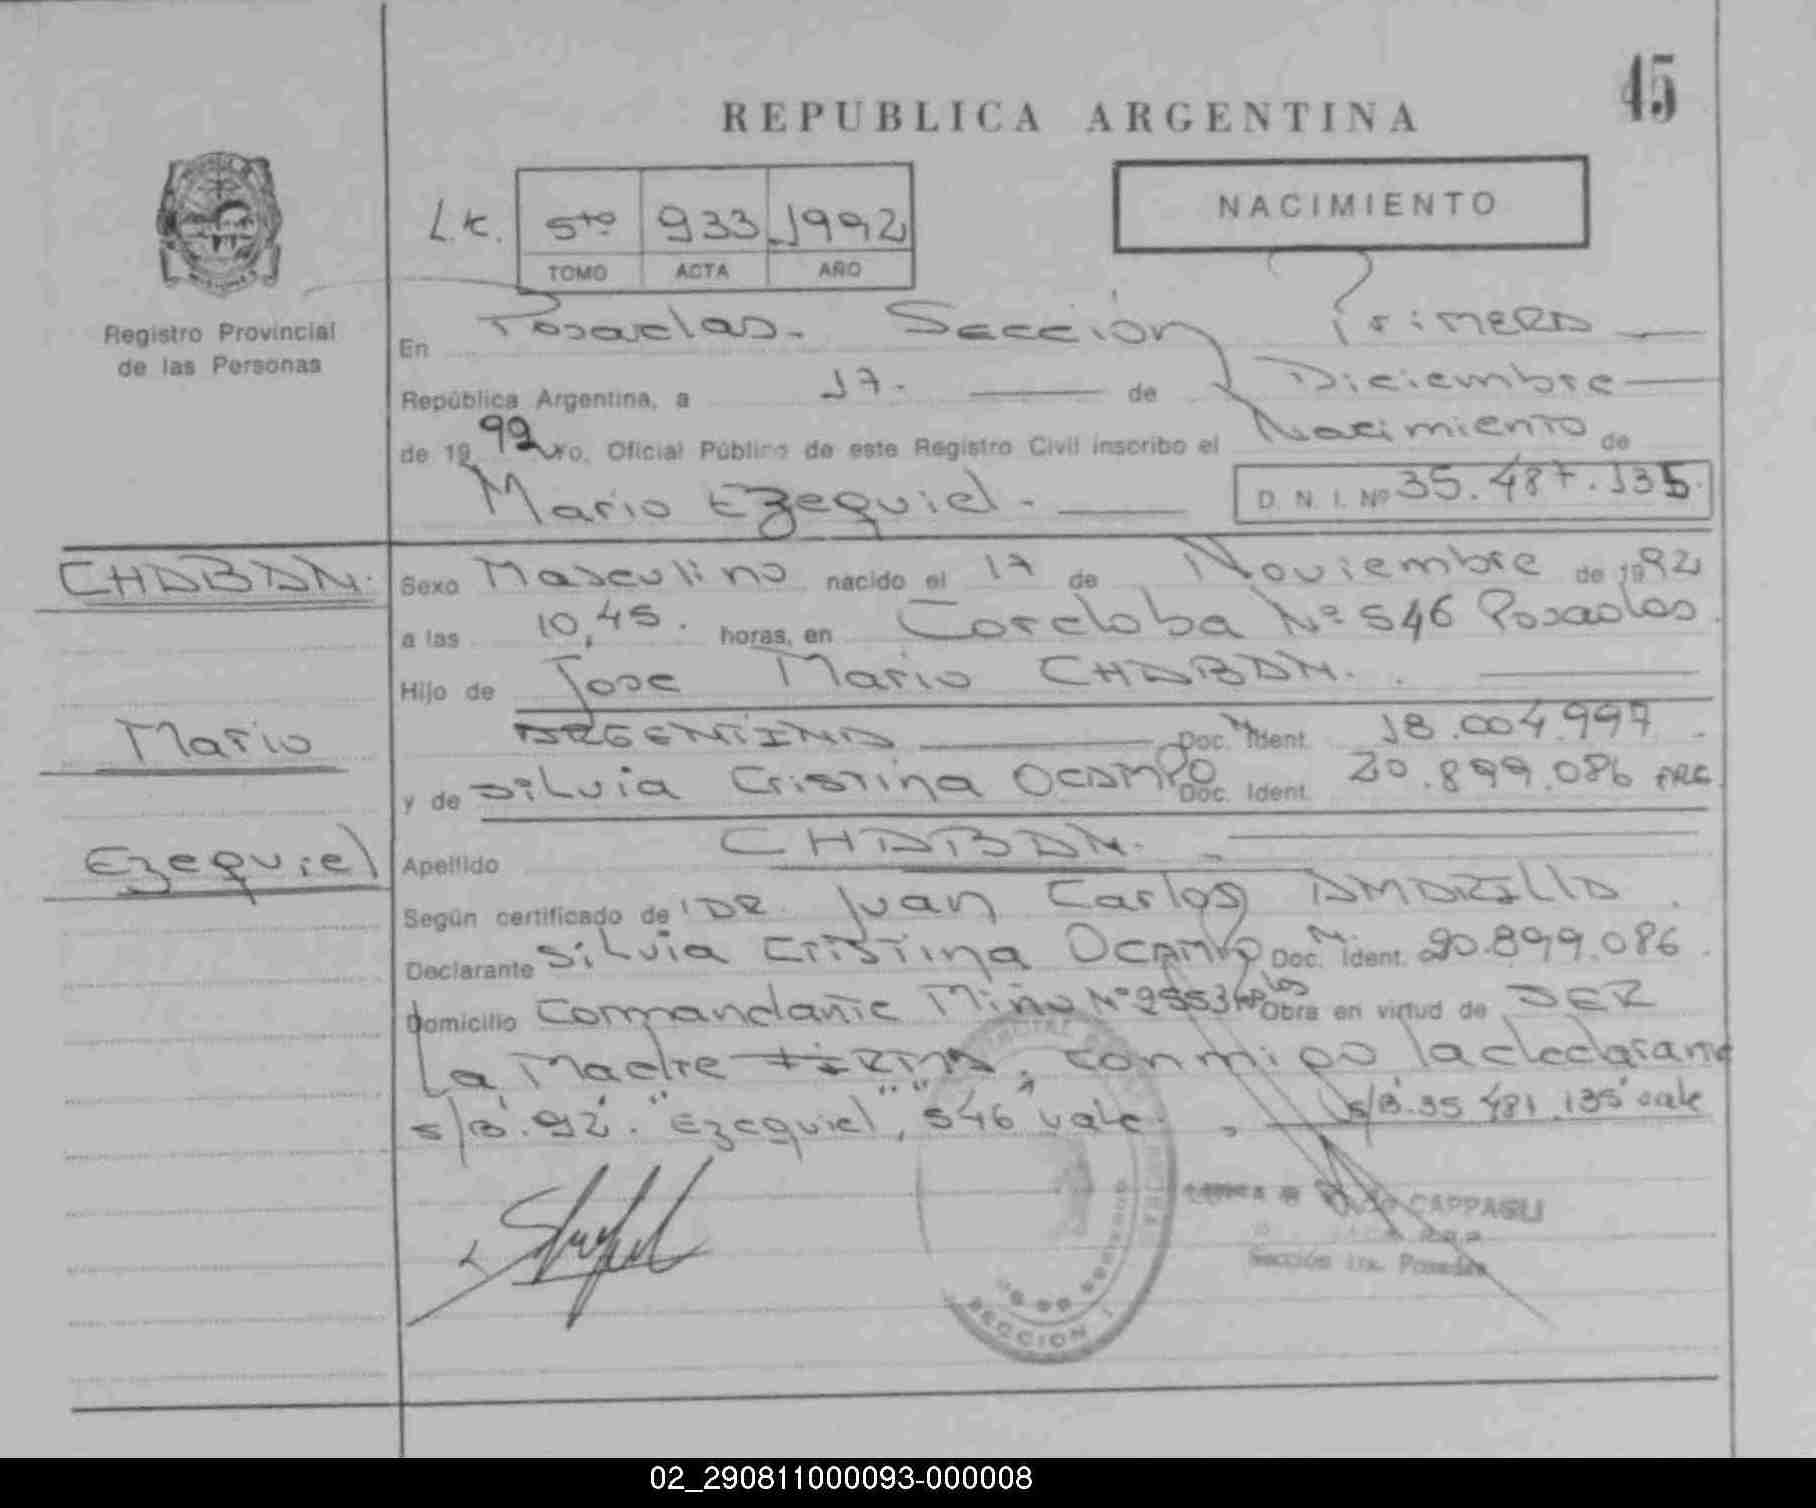 45
REPUBLICA ARGENTINA
NACIMIENTO
5to 933 1992
TOMO ACTA AÑO
Registro Provincial
de las Personas
En Posadas. Sección Primera
República Argentina, a 17. de Diciembre
de 1992 Yo, Oficial Público de este Registro Civil inscribo el Nacimiento de
Mario Ezequiel. D. N. I. Nº 35.487.135
CHABAN. Sexo Masculino nacido el 17 de Noviembre de 1992
a las 10,45. horas, en Cordoba Nº 546 Posadas.
Hijo de Jose Mario CHABAN.
Mario ARGENTINA Doc. Ident. 18.004.997
y de Silvia Cristina Ocampo Doc. Ident. 20.899.086 ARG
Ezequiel Apellido CHABAN.
Según certificado de DR. Juan Carlos AMARILLA
Declarante Silvia Cristina Ocampo Doc. Ident. 20.899.086.
Domicilio Comandante Miño Nº Obra en virtud de SER
La Madre FIRMA. conmigo la declarante
s/B. 92. "Ezequiel", "546" vale. s/B. vale
CAPPAGLI
Sección 1ra. Posadas
SECCION 1
02_290811000093-000008